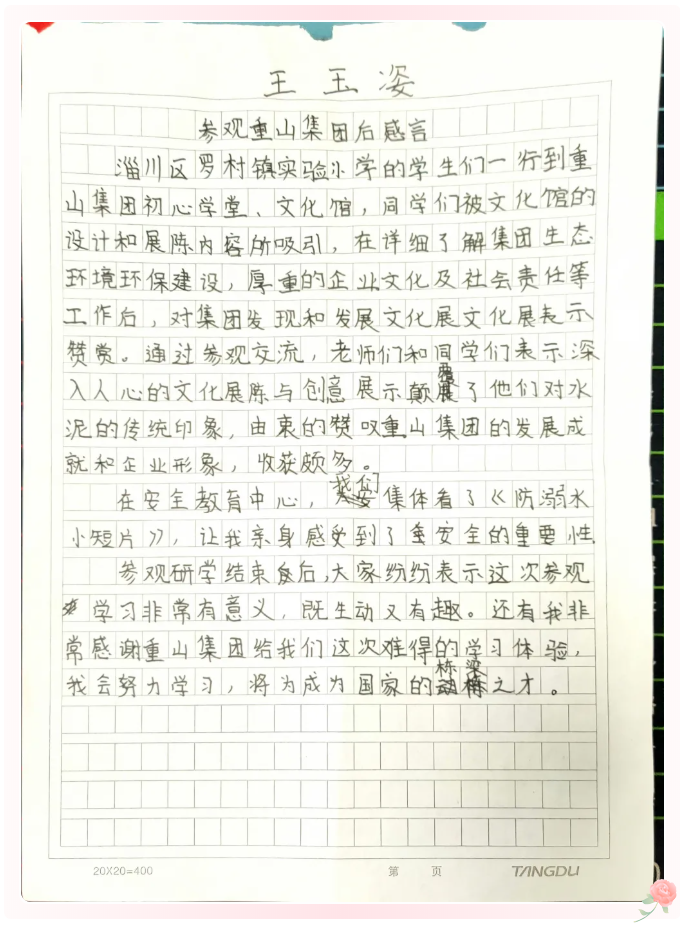 王玉姿
参观重山集团后感言
淄川区罗村镇实验小学的学生们一行到重
山集团初心学堂、文化馆,同学们被文化馆的
设计和展陈内容所吸引,在详细了解集团生态
环境环保建设,厚重的企业文化及社会责任等
工作后,对集团发现和发展文化展文化展表示
赞赏。通过参观交流,老师们和同学们表示深
入人心的文化展陈与创意展示颠覆了他们对水
泥的传统印象,由衷的赞叹重山集团的发展成
就和企业形象,收获颇多。
在安全教育中心,我们集体看了《防溺水
小短片》,让我亲身感受到了安全的重要性.
参观研学结束后,大家纷纷表示这次参观
学习非常有意义,既生动又有趣。还有我非
常感谢重山集团给我们这次难得的学习体验,
我会努力学习,将为成为国家的栋梁之才。
20X20=400 第 页 TANGDU